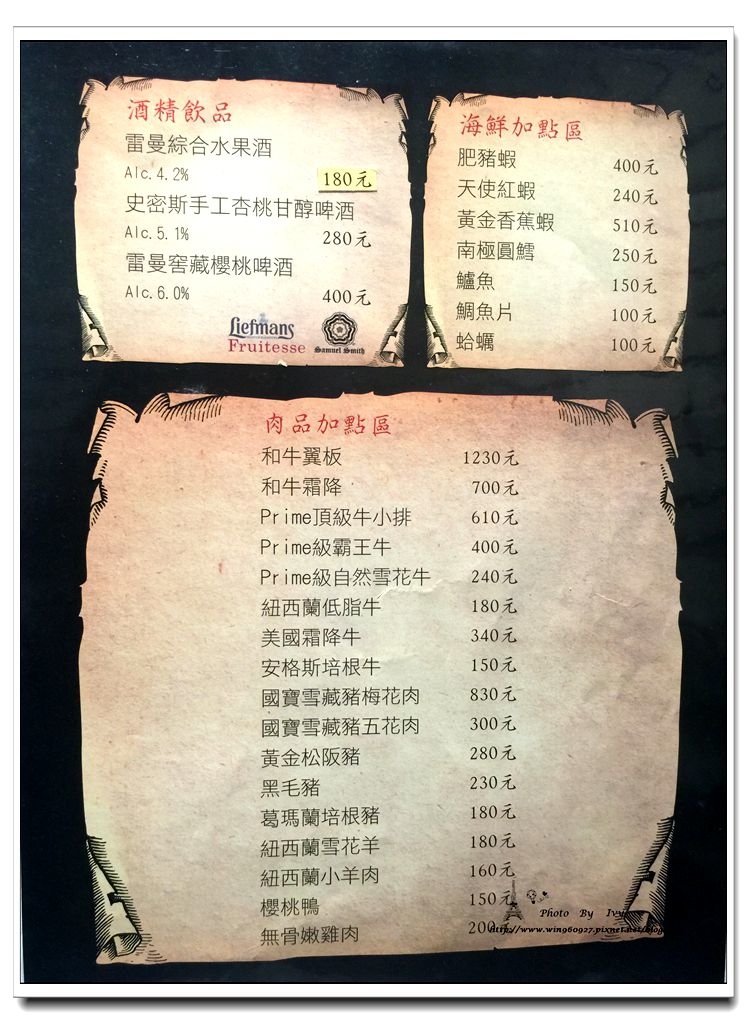 酒精飲品
雷曼綜合水果酒
Alc.4.2% 180元
史密斯手工杏桃甘醇啤酒
Alc.5.1% 280元
雷曼窖藏櫻桃啤酒
Alc.6.0% 400元
Liefmans
Fruitesse
Samuel Smith
海鮮加點區
肥豬蝦 400元
天使紅蝦 240元
黃金香蕉蝦 510元
南極圓鱈 250元
鱸魚 150元
鯛魚片 100元
蛤蠣 100元
肉品加點區
和牛翼板 1230元
和牛霜降 700元
Prime頂級牛小排 610元
Prime級霸王牛 400元
Prime級自然雪花牛 240元
紐西蘭低脂牛 180元
美國霜降牛 340元
安格斯培根牛 150元
國寶雪藏豬梅花肉 830元
國寶雪藏豬五花肉 300元
黃金松阪豬 280元
黑毛豬 230元
葛瑪蘭培根豬 180元
紐西蘭雪花羊 180元
紐西蘭小羊肉 160元
櫻桃鴨 150元
無骨嫩雞肉 200元
Photo By Ivy
http://www.win960927.pixnet.net/blog